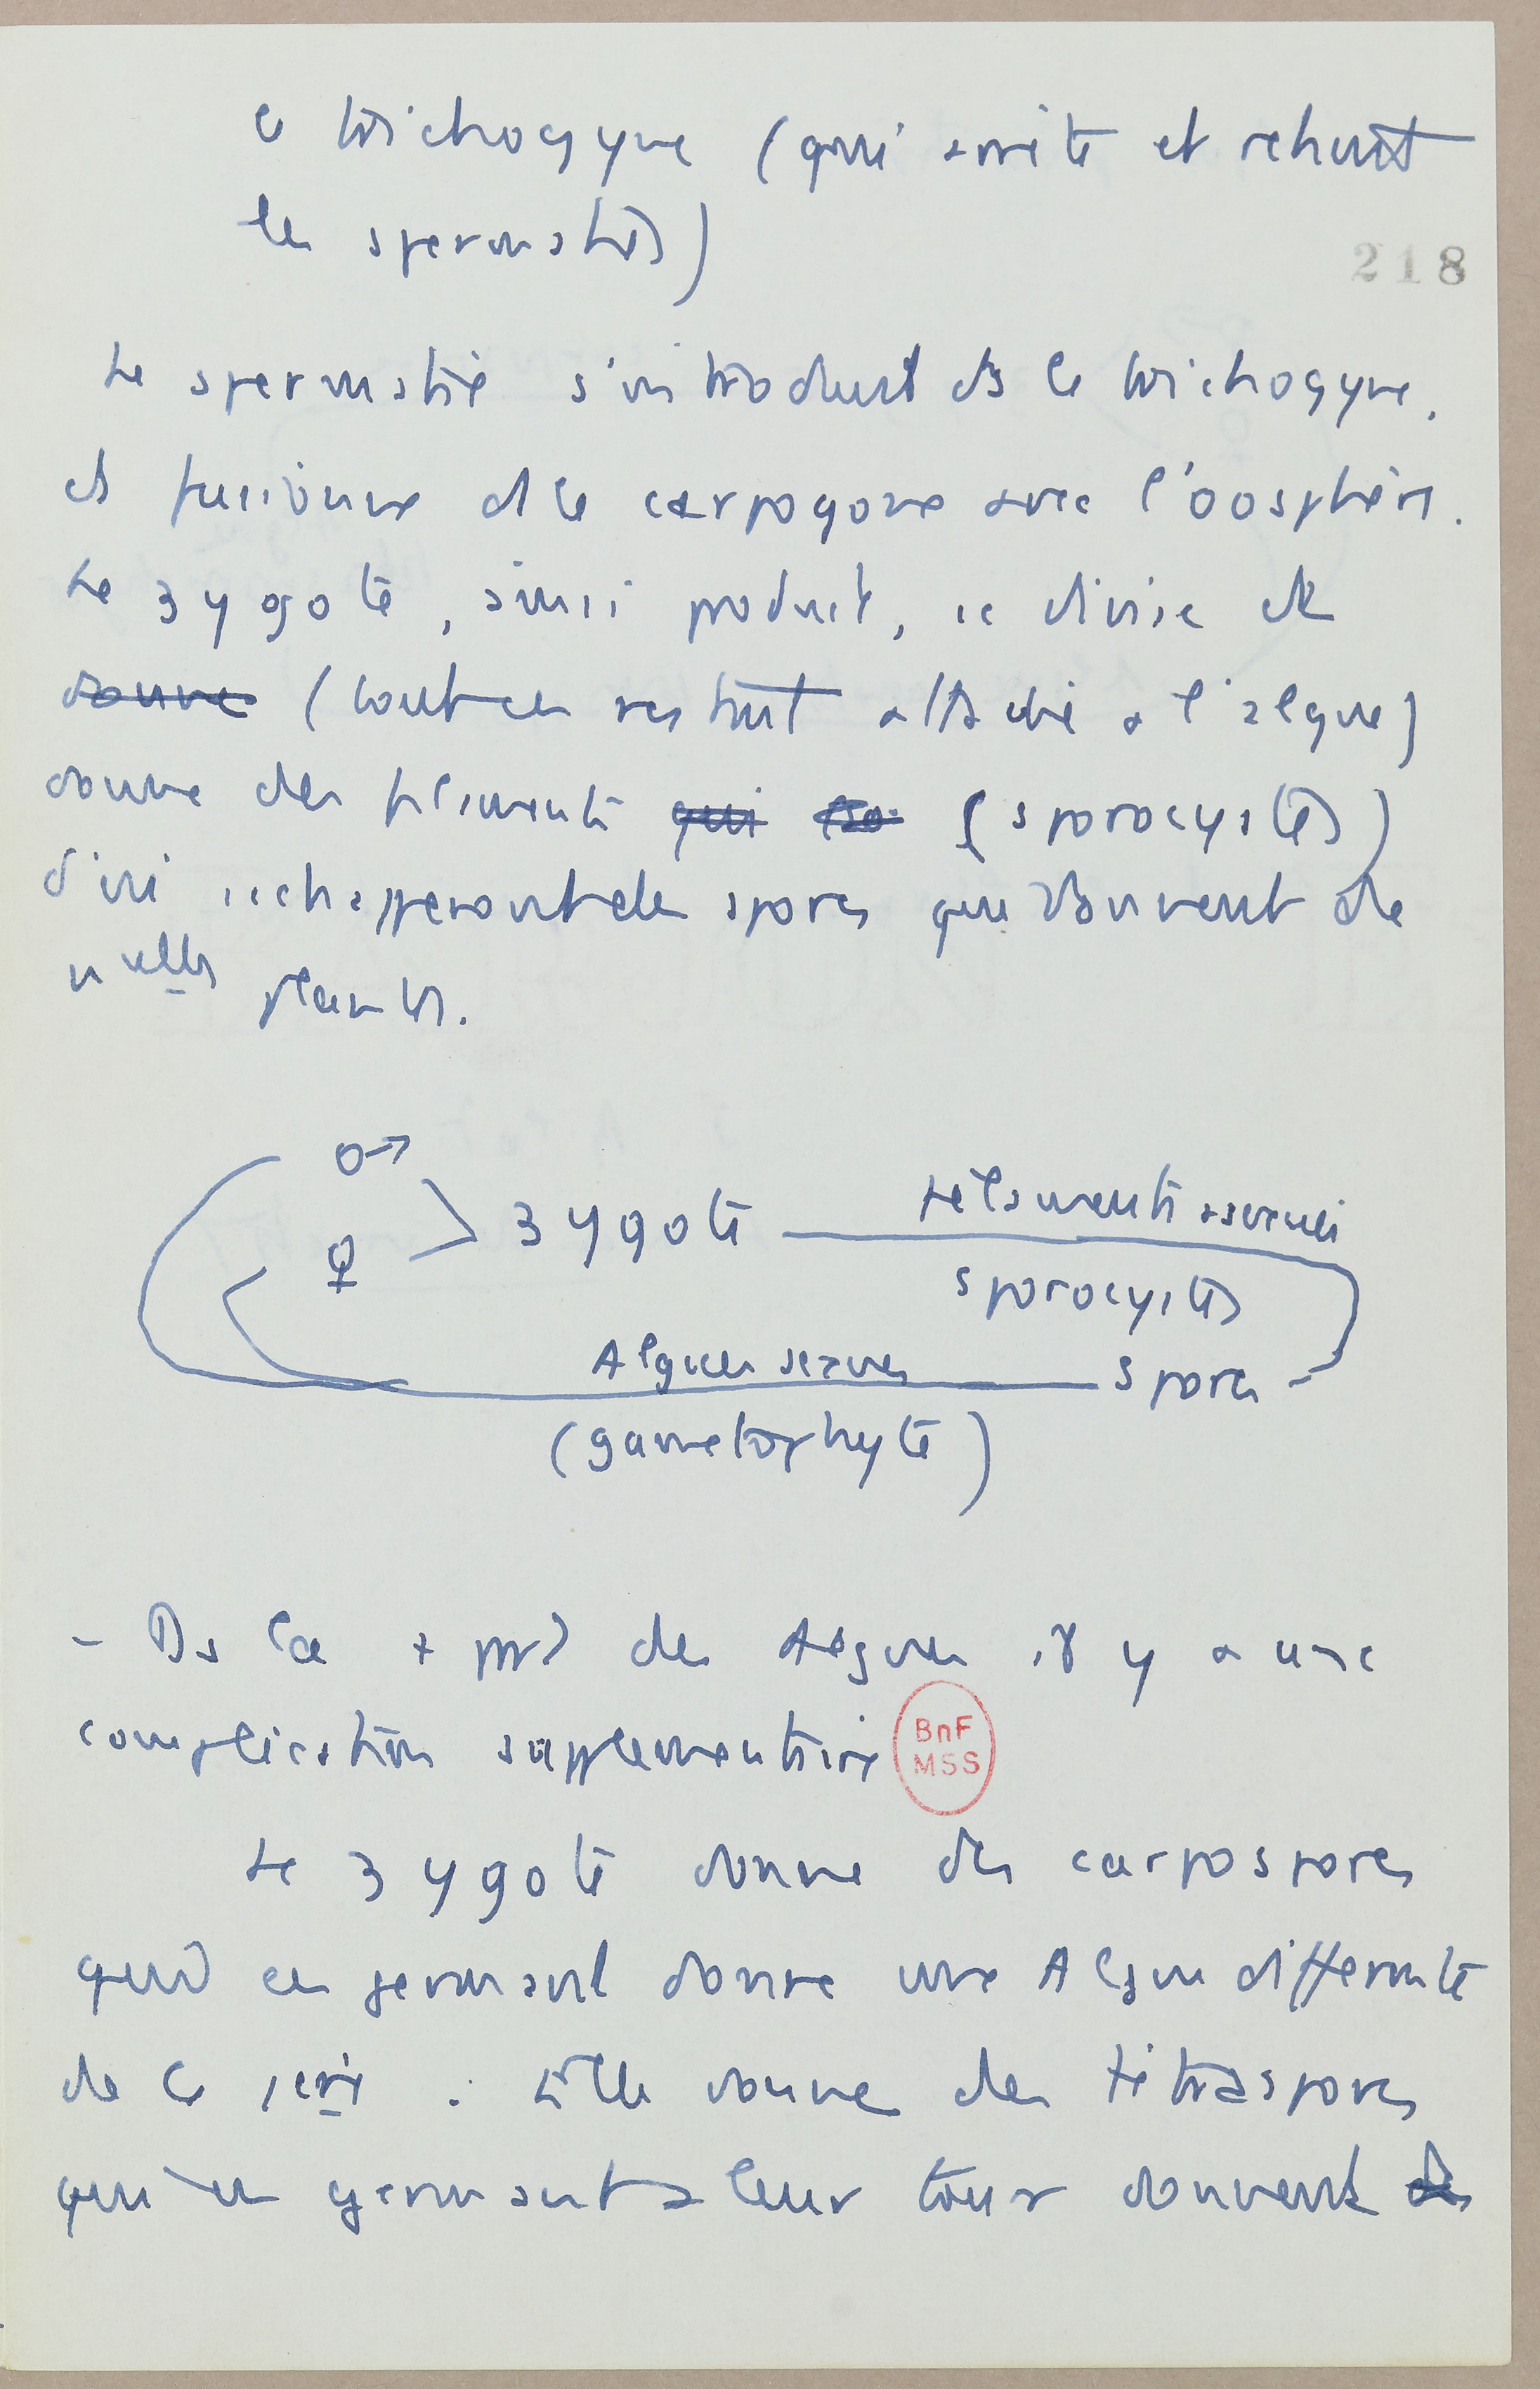 le trichogyne (qui arrête et retient
les spermaties)
218
Le spermatie s'introduit ds le trichogyne.
et fusionne ds le carpogone avec l'oosphère.
Le zygote, ainsi produit, se divise et
donne (tout en restant attaché à l'algue)
donne des filaments qui (sporocystes)
d'où s'échapperont des spores qui donnent de
nelles plantes.
♂
♀
zygote
filaments asexués
sporocystes
Algues sexuées
spores
(gametophyte)
- Ds la + pt des Algues il y a une
complication supplementaire
BnF
MSS
Le zygote donne des carpospores
qui en germant donne une Algue differente
de la 1ere : Elle donne des tétraspores
qui en germant à leur tour donnent des